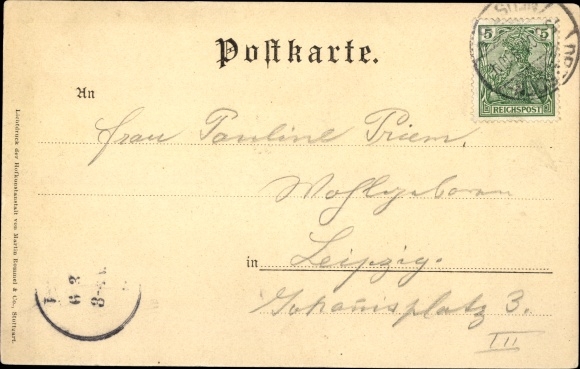 Postkarte.
5 5
REICHSPOST
An
Frau Pauline Priem.
Wohlgeboren
in Leipzig.
Johannisplatz 3.
III
Lichtdruck der Hofkunstanstalt von Martin Rommel & Co., Stuttgart.